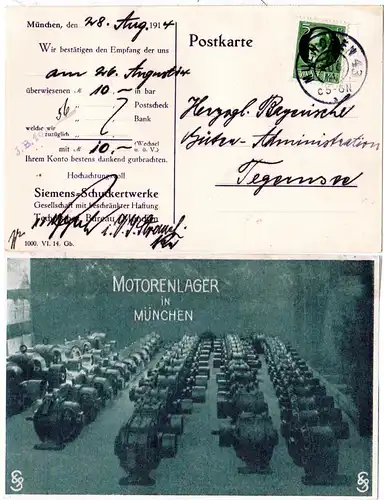 München, den 28. Aug. 1914
Wir bestätigen den Empfang der uns
am 26. August
überwiesenen M 10.– in bar
Postscheck
Bank
welche wir
zuzüglich
(Wechsel
mit M 10.– u. ö. V.)
Ihrem Konto bestens dankend gutbrachten.
Hochachtungsvoll
Siemens-Schuckertwerke
Gesellschaft mit beschränkter Haftung
Technisches Bureau München
1000. VI. 14. Gb.
Postkarte
MÜNCHEN 43
Herzogl. Bayerische
Güter-Administration
Tegernsee
MOTORENLAGER
IN
MÜNCHEN